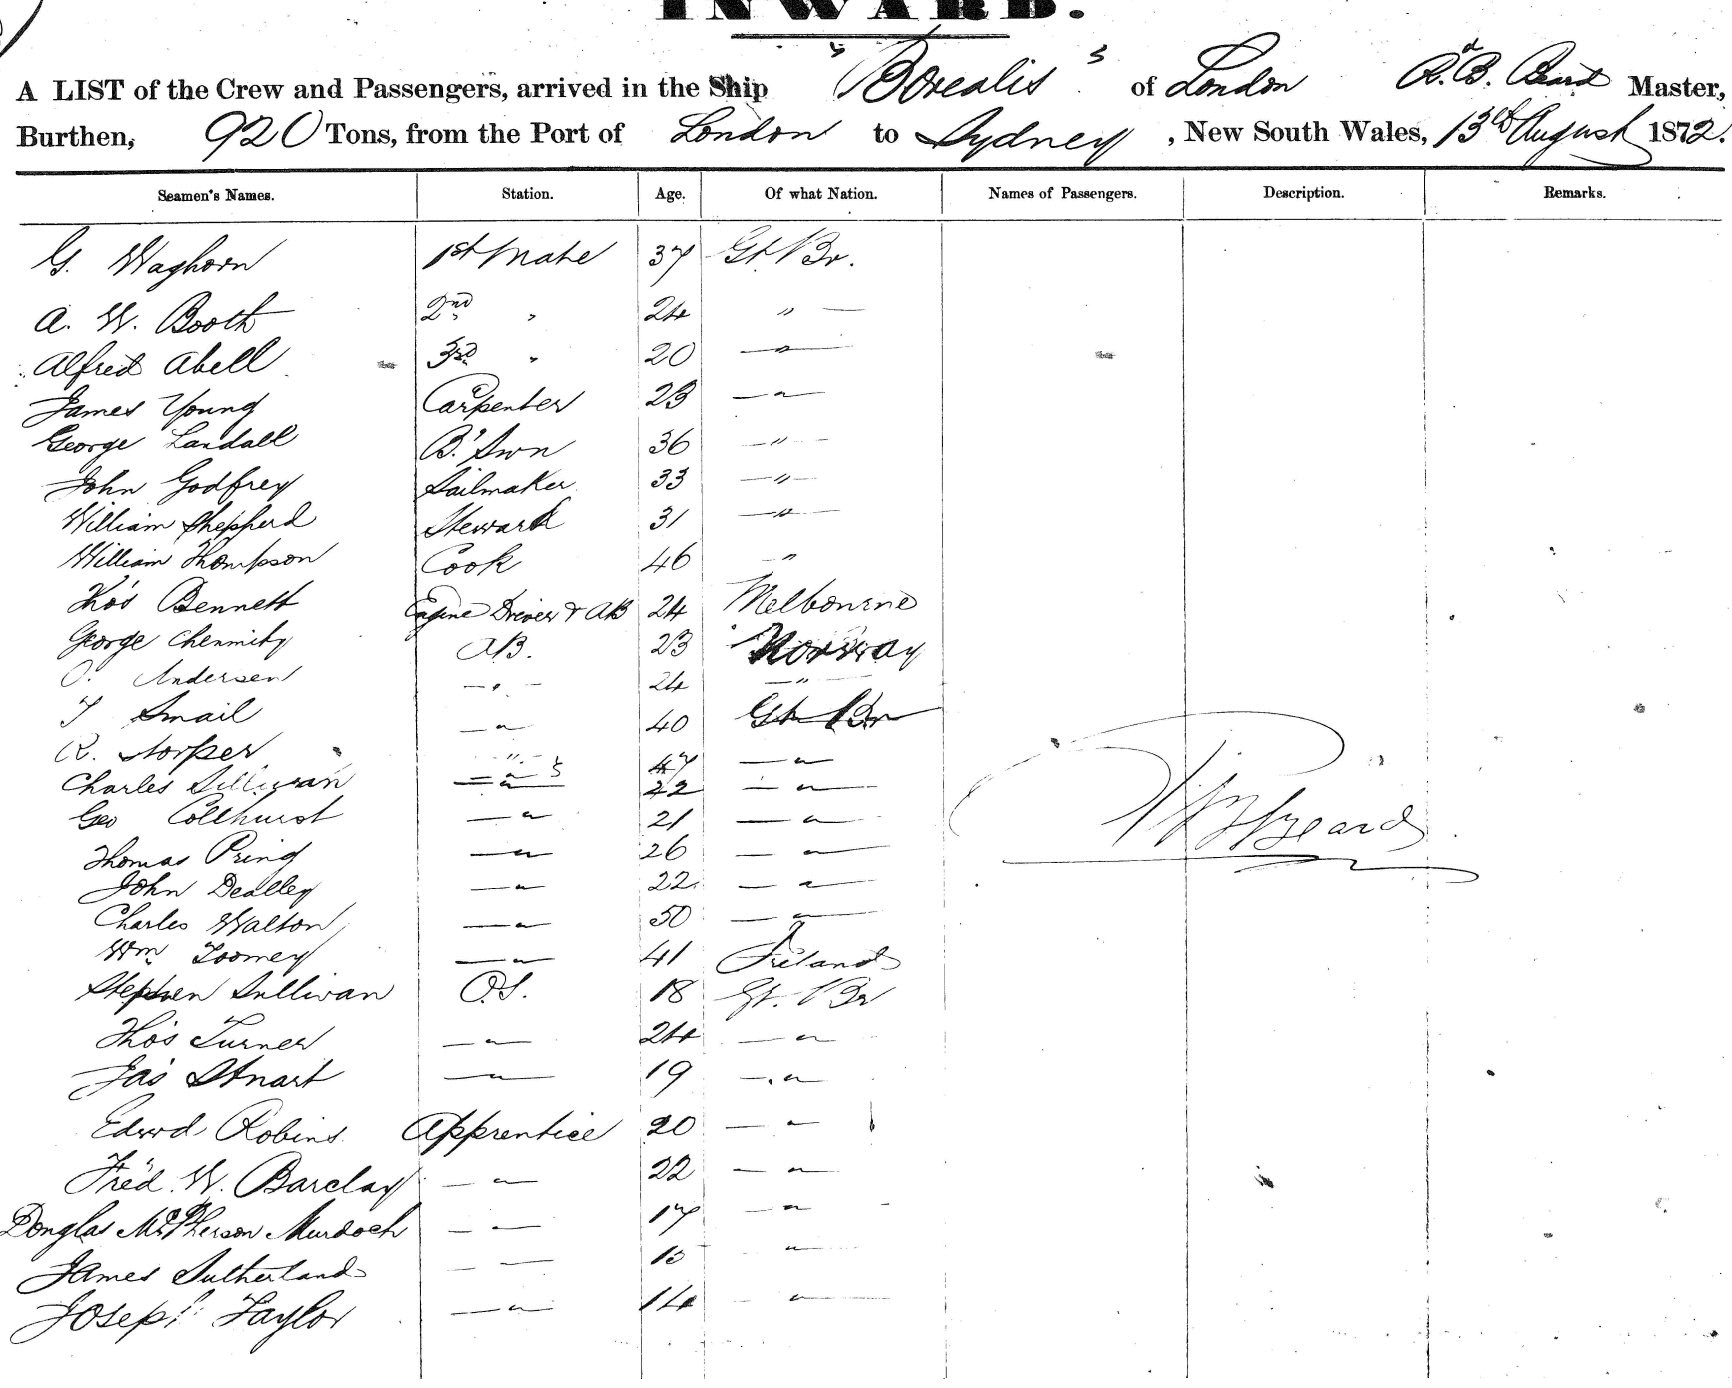 INWARD.
A LIST of the Crew and Passengers, arrived in the Ship "Borealis" of London Master,
Burthen, 920 Tons, from the Port of London to Sydney, New South Wales, 13th August 1872.
Seamen's Names. Station. Age. Of what Nation. Names of Passengers. Description. Remarks.
G. Waghorn 1st Mate 37 Gt. Br.
A. W. Booth 2nd " 24 "
Alfred Abell 3rd " 20 "
James Young Carpenter 23 "
George Landall B'Swn 36 "
John Godfrey Sailmaker 33 "
William Shepperd Steward 31 "
William Thompson Cook 46 "
Thos Bennett Engine Driver & AB 24 Melbourne
George AB. 23 Norway
O. Andersen " 24 "
T Smail " 40 Gt Br
R. " 47 "
Charles Sullivan " 22 "
Geo Collhurst " 21 "
Thomas Pring " 26 "
John Dealley " 22 "
Charles Walton " 50 "
Wm Toomey " 41 Ireland
Stephen Sullivan O.S. 18 Gt. Br
Thos Turner " 24 "
Jas Stuart " 19 "
Edwd Robins Apprentice 20 "
Fred. W. Barclay " 22 "
Douglas McPherson Murdoch " 17 "
James Sutherland "
Joseph Taylor " 14 "
Beard